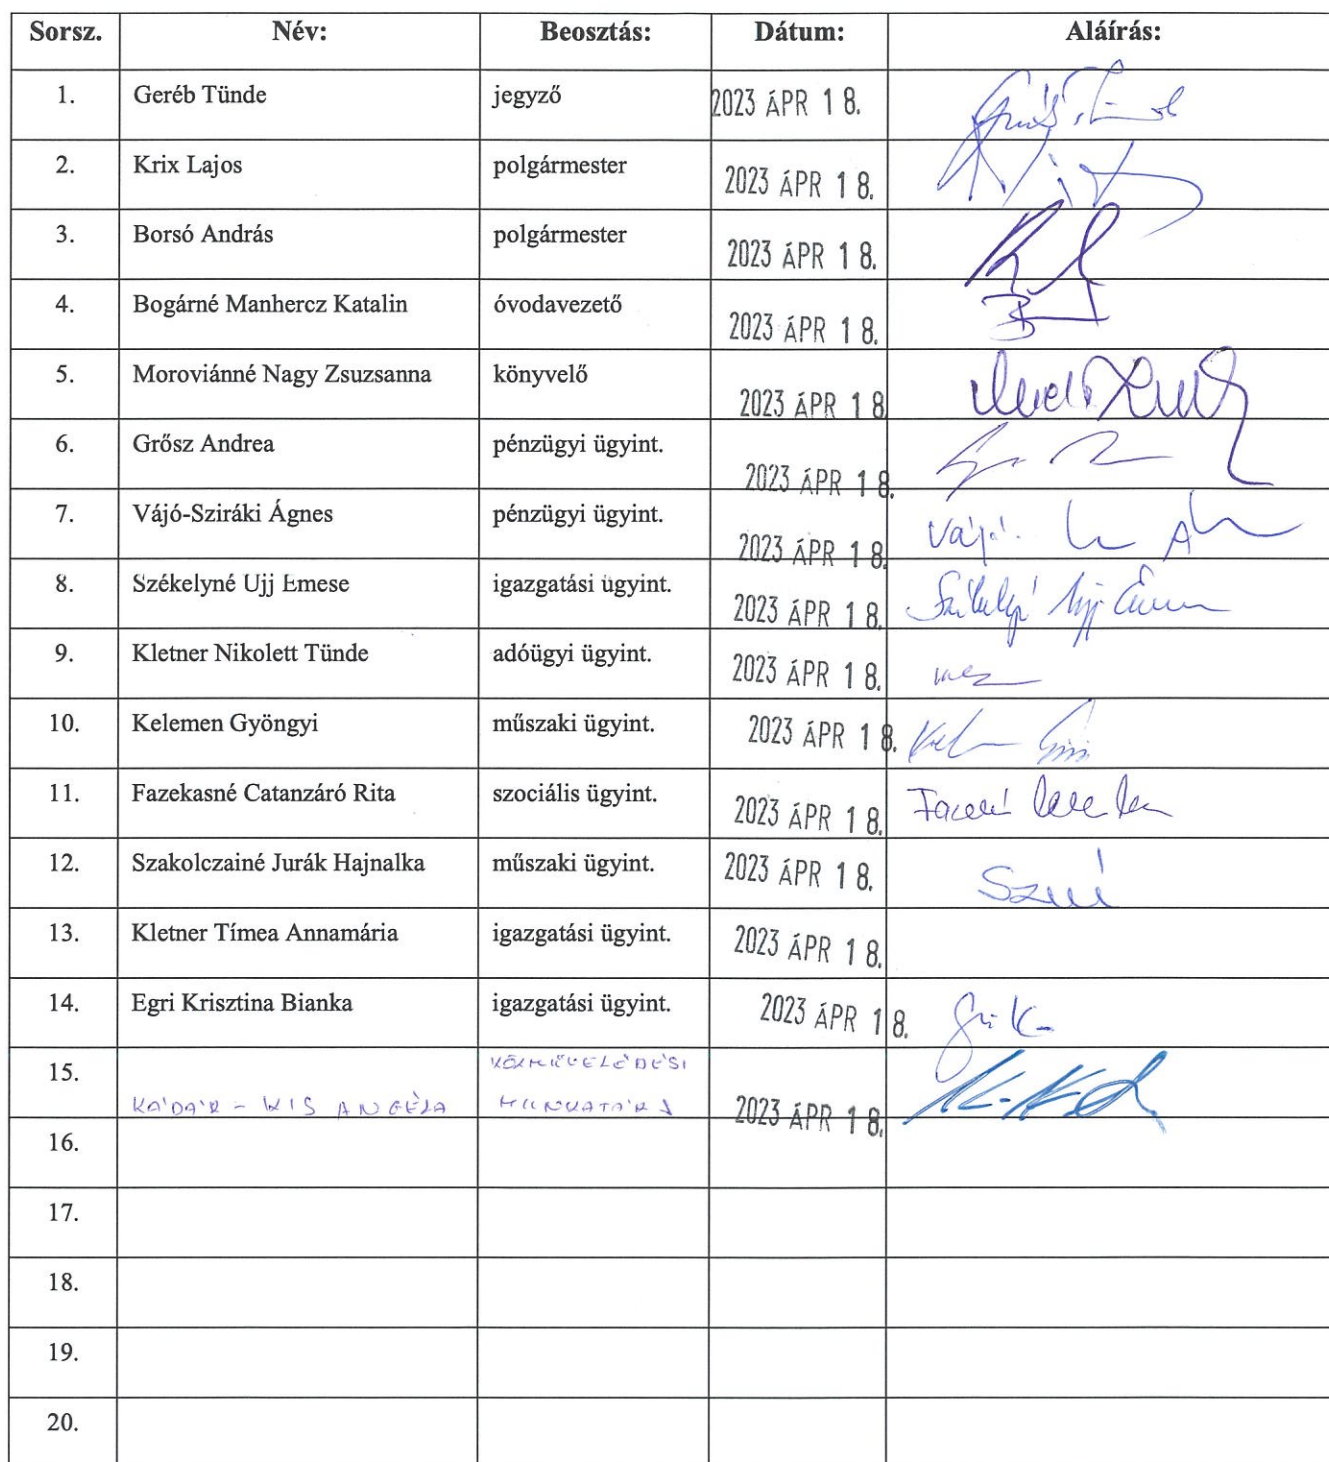 Sorsz. Név: Beosztás: Dátum: Aláírás:
1. Geréb Tünde jegyző 2023 ÁPR 18.
2. Krix Lajos polgármester 2023 ÁPR 18.
3. Borsó András polgármester 2023 ÁPR 18.
4. Bogárné Manhercz Katalin óvodavezető 2023 ÁPR 18.
5. Moroviánné Nagy Zsuzsanna könyvelő 2023 ÁPR 18
6. Grősz Andrea pénzügyi ügyint. 2023 ÁPR 18.
7. Vájó-Sziráki Ágnes pénzügyi ügyint. 2023 ÁPR 18. Vájó
8. Székelyné Ujj Emese igazgatási ügyint. 2023 ÁPR 18.
9. Kletner Nikolett Tünde adóügyi ügyint. 2023 ÁPR 18.
10. Kelemen Gyöngyi műszaki ügyint. 2023 ÁPR 18.
11. Fazekasné Catanzáró Rita szociális ügyint. 2023 ÁPR 18.
12. Szakolczainé Jurák Hajnalka műszaki ügyint. 2023 ÁPR 18.
13. Kletner Tímea Annamária igazgatási ügyint. 2023 ÁPR 18.
14. Egri Krisztina Bianka igazgatási ügyint. 2023 ÁPR 18.
15. KÖZMŰVELŐDÉSI
KÁDÁR - KIS ANGÉLA MUNKATÁRS 2023 ÁPR 18. K-K A
16.
17.
18.
19.
20.